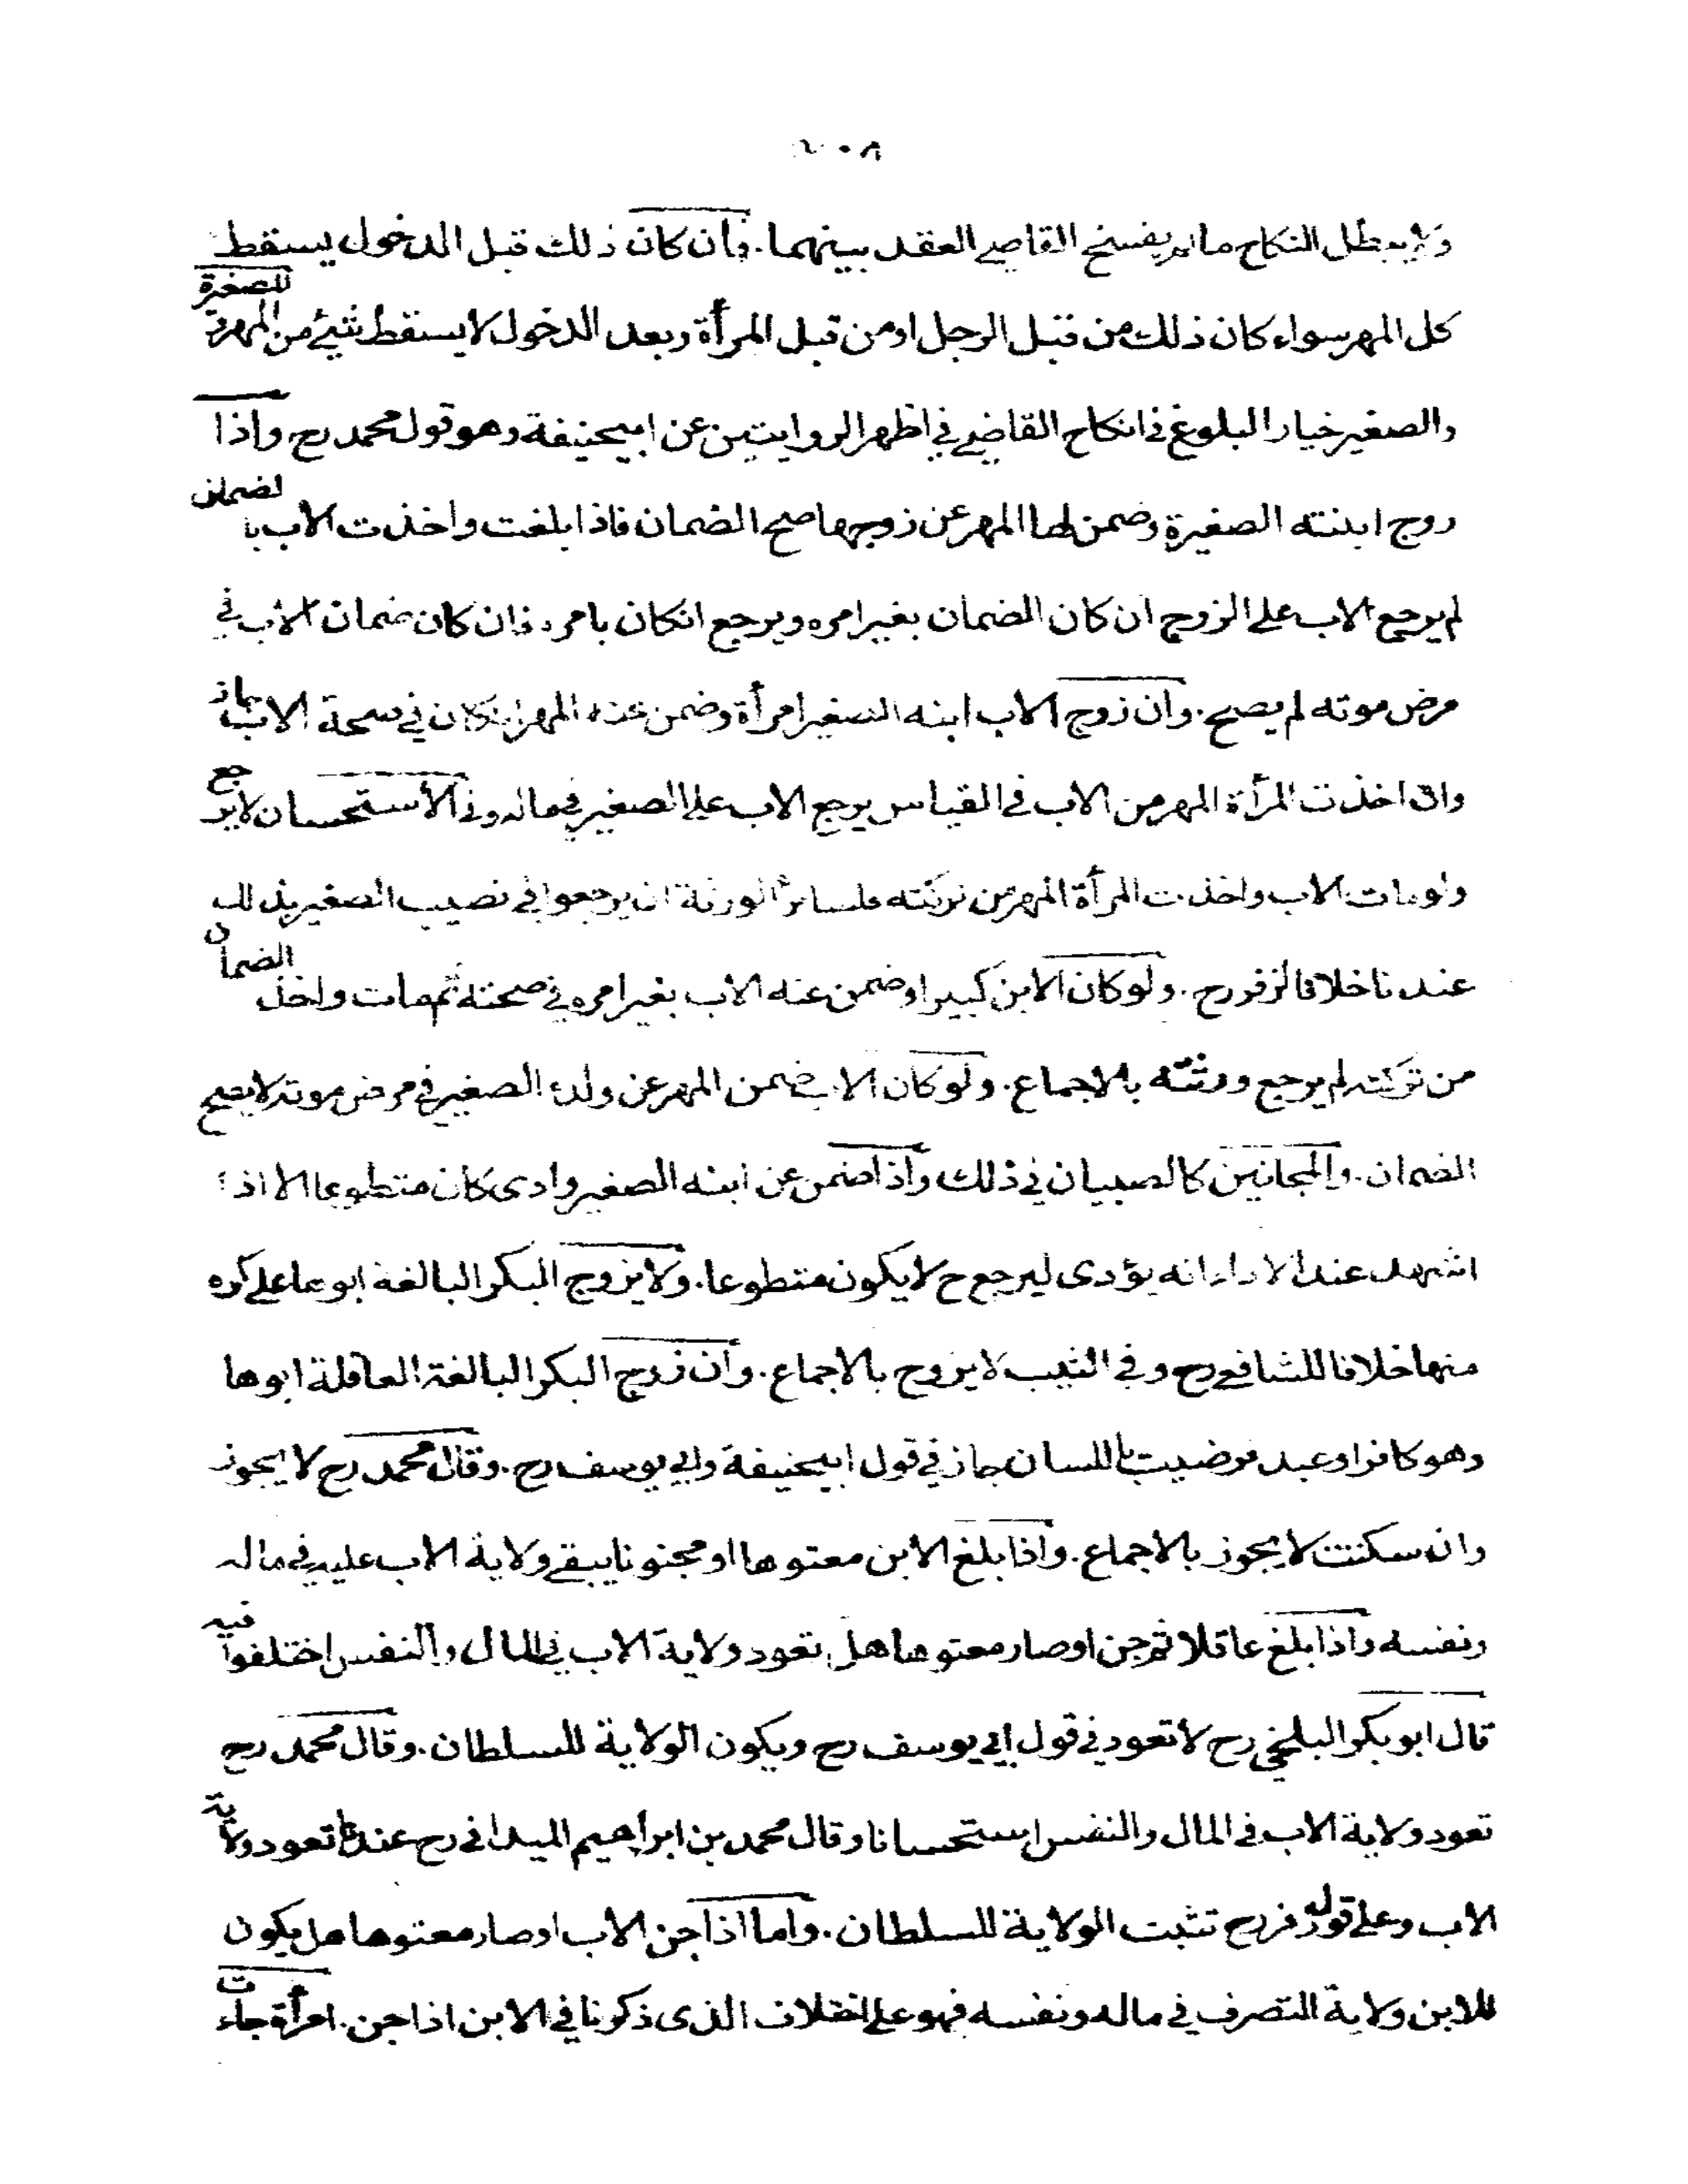 ٢٠٨
ولا يبطل النكاح مالم يفسخ القاضي العقد بينهما. وان كان ذلك قبل الدخول يسقط
كل المهر سواء كان ذلك من قبل الرجل او من قبل المرأة وبعد الدخول لا يسقط شيئ من المهر وللصغيرة
والصغير خيار البلوغ في انكاح القاضي في اظهر الروايتين عن ابيحنيفة وهو قول محمد رح واذا
زوج ابنته الصغيرة وضمن لها المهر عن زوجها صح الضمان فاذا بلغت واخذت الاب بالضمان
لم يرجع الاب على الزوج ان كان الضمان بغير امره ويرجع انكان بامره فان كان ضمان الاب في
مرض موته لم يصح. وان زوج الاب ابنه الصغير امرأة وضمن عنه المهر انكان في صحة الاب جاز
وان اخذت المرأة المهر من الاب في القياس يرجع الاب على الصغير في ماله وفي الأستحسان لا يرجع
ولو مات الاب واخذت المرأة المهر من تركته فلسائر الورثة ان يرجعوا في نصيب الصغير بذلك
عندنا خلافا لزفر رح. ولو كان الابن كبيرا وضمن عنه الاب بغير امره في صحته ثم مات واخذ الضمان
من تركته لم يرجع ورثته بالاجماع. ولو كان الاب ضمن المهر عن ولده الصغير في مرض موته لا يصح
الضمان. والمجانين كالصبيان في ذلك واذا ضمن عن ابنه الصغير وادى كان متطوعا الا اذا
اشهد عند الاداء انه يؤدى ليرجع ح لا يكون متطوعا. ولا يزوج البكر البالغة ابوها على كره
منها خلافا للشافعي رح وفي الثيب لا يزوج بالاجماع. وان زوج البكر البالغة العاقلة ابوها
وهو كافر او عبد فرضيت باللسان جاز في قول ابيحنيفة وابي يوسف رح. وقال محمد رح لا يجوز
وان سكتت لا يجوز بالاجماع. واذا بلغ الابن معتوها او مجنونا يبقى ولاية الاب عليه في ماله
ونفسه واذا بلغ عاقلا ثم جن او صار معتوها هل تعود ولاية الاب في المال والنفس اختلفوا فيه
قال ابو بكر البلخي رح لا تعود في قول ابي يوسف رح ويكون الولاية للسلطان. وقال محمد رح
تعود ولاية الاب في المال والنفس استحسانا وقال محمد بن ابراهيم الميداني رح عندنا تعود ولاية
الاب وعلى قول زفر رح تثبت الولاية للسلطان. واما اذا جن الاب او صار معتوها هل يكون
للابن ولاية التصرف في ماله ونفسه فهو على الخلاف الذى ذكرنا في الابن اذا جن. امرأة جاءت